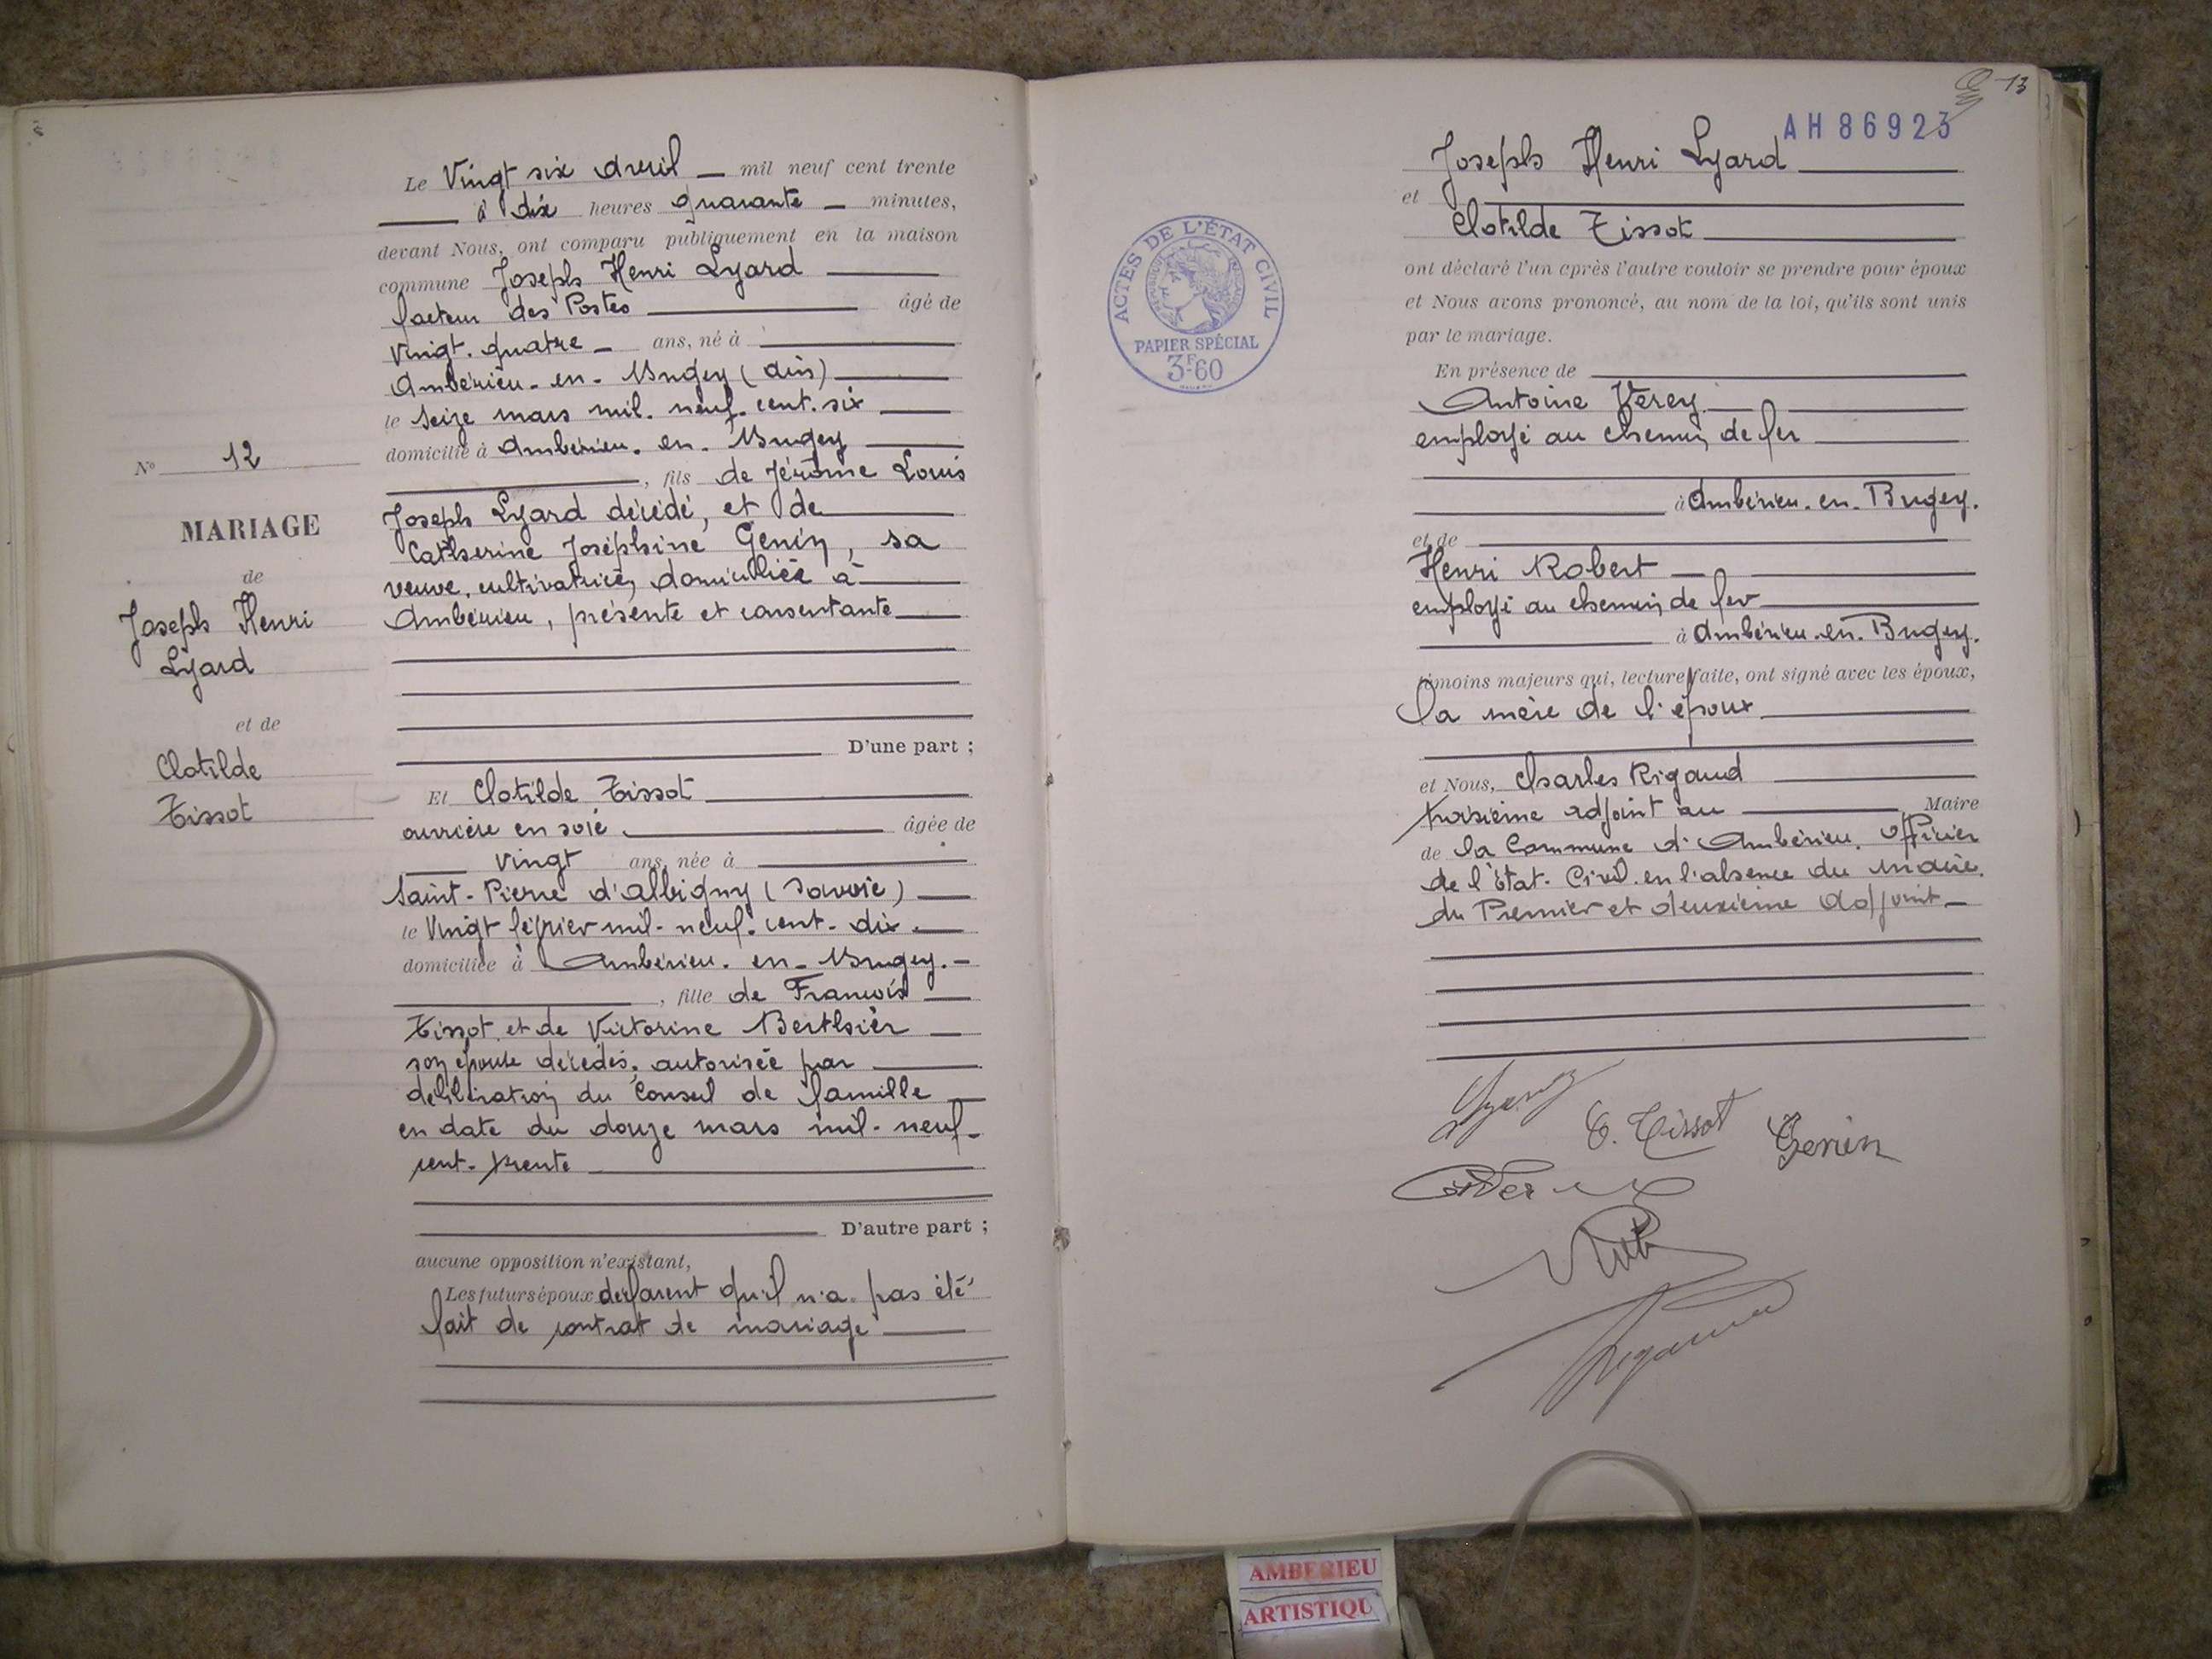 Le Vingt six avril — mil neuf cent trente
à dix heures quarante — minutes,
devant Nous, ont comparu publiquement en la maison
commune Joseph Henri Lyard
facteur des Postes âgé de
vingt-quatre — ans, né à
Ambérieu-en-Bugey (Ain)
le seize mars mil-neuf-cent-six
domicilié à Ambérieu-en-Bugey
, fils de Jérôme Louis
Joseph Lyard décédé, et de
Catherine Joséphine Genin, sa
veuve, cultivatrice, domiciliée à
Ambérieu, présente et consentante
D'une part ;
N° 12
MARIAGE
de
Joseph Henri
Lyard
et de
Clotilde
Tissot
Et Clotilde Tissot
ouvrière en soie âgée de
vingt ans, née à
Saint-Pierre d'Albigny (Savoie)
le Vingt février mil-neuf-cent-dix
domiciliée à Ambérieu-en-Bugey.
, fille de François
Tissot et de Victorine Berthier
son épouse décédés, autorisée par
délibération du Conseil de famille
en date du douze mars mil-neuf-
cent-trente
D'autre part ;
aucune opposition n'existant,
Les futurs époux déclarent qu'il n'a pas été
fait de contrat de mariage
13
AH86923
Joseph Henri Lyard
et
Clotilde Tissot
ont déclaré l'un après l'autre vouloir se prendre pour époux
et Nous avons prononcé, au nom de la loi, qu'ils sont unis
par le mariage.
En présence de
Antoine Verey
employé au chemin de fer
à Ambérieu-en-Bugey.
et de
Henri Robert
employé au chemin de fer
à Ambérieu-en-Bugey.
témoins majeurs qui, lecture faite, ont signé avec les époux,
la mère de l'époux
et Nous, Charles Rigaud
troisième adjoint au Maire
de la Commune d'Ambérieu. Officier
de l'État-Civil en l'absence du Maire.
du Premier et deuxième adjoint
Lyard
C. Tissot
Genin
Rigaud
ACTES DE L'ÉTAT CIVIL
RÉPUBLIQUE FRANÇAISE
PAPIER SPÉCIAL
3F60
AMBERIEU
ARTISTIQU